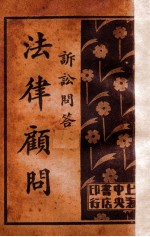 訴訟問答
法律顧問
上海
中央
書店
印行